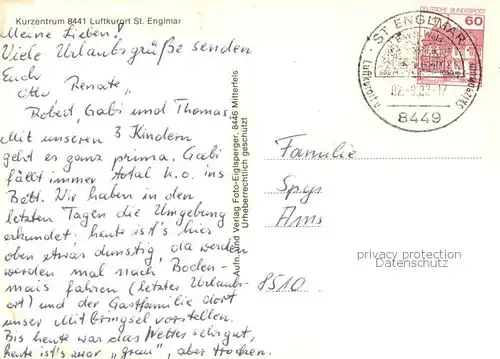 Kurzentrum 8441 Luftkurort St. Englmar
Meine Lieben!
Viele Urlaubsgrüße senden
Euch
Otto Renate
Robert, Gabi und Thomas
Mit unseren 3 Kindern
geht es ganz prima. Gabi
fällt immer total k.o. ins
Bett. Wir haben in den
letzten Tagen die Umgebung
erkundet; heute ist's hier
oben etwas dunstig, da werden
werden mal nach Boden-
mais fahren (letzter Urlaubs-
ort) und der Gastfamilie dort
unser Mitbringsel vorstellen.
Bis heute war das Wetter sehr gut,
heute ist's zwar "grau", aber trocken.
Aufn. und Verlag Foto-Eiglsperger, 8446 Mitterfels
Urheberrechtlich geschützt
DEUTSCHE BUNDESPOST
60
ST ENGLMAR
Luftkurort
Skizentrum
8449
Familie
8510
privacy protection
Datenschutz